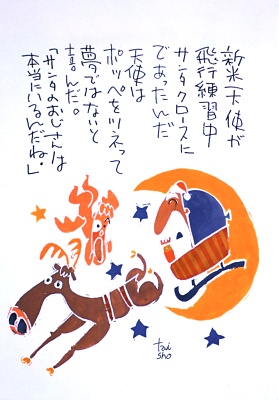 新米天使が
飛行練習中
サンタクロースに
であったんだ
天使は
ホッペをツネって
夢ではないと
喜んだ。
「サンタのおじさんは
本当にいるんだね。」
tai
sho